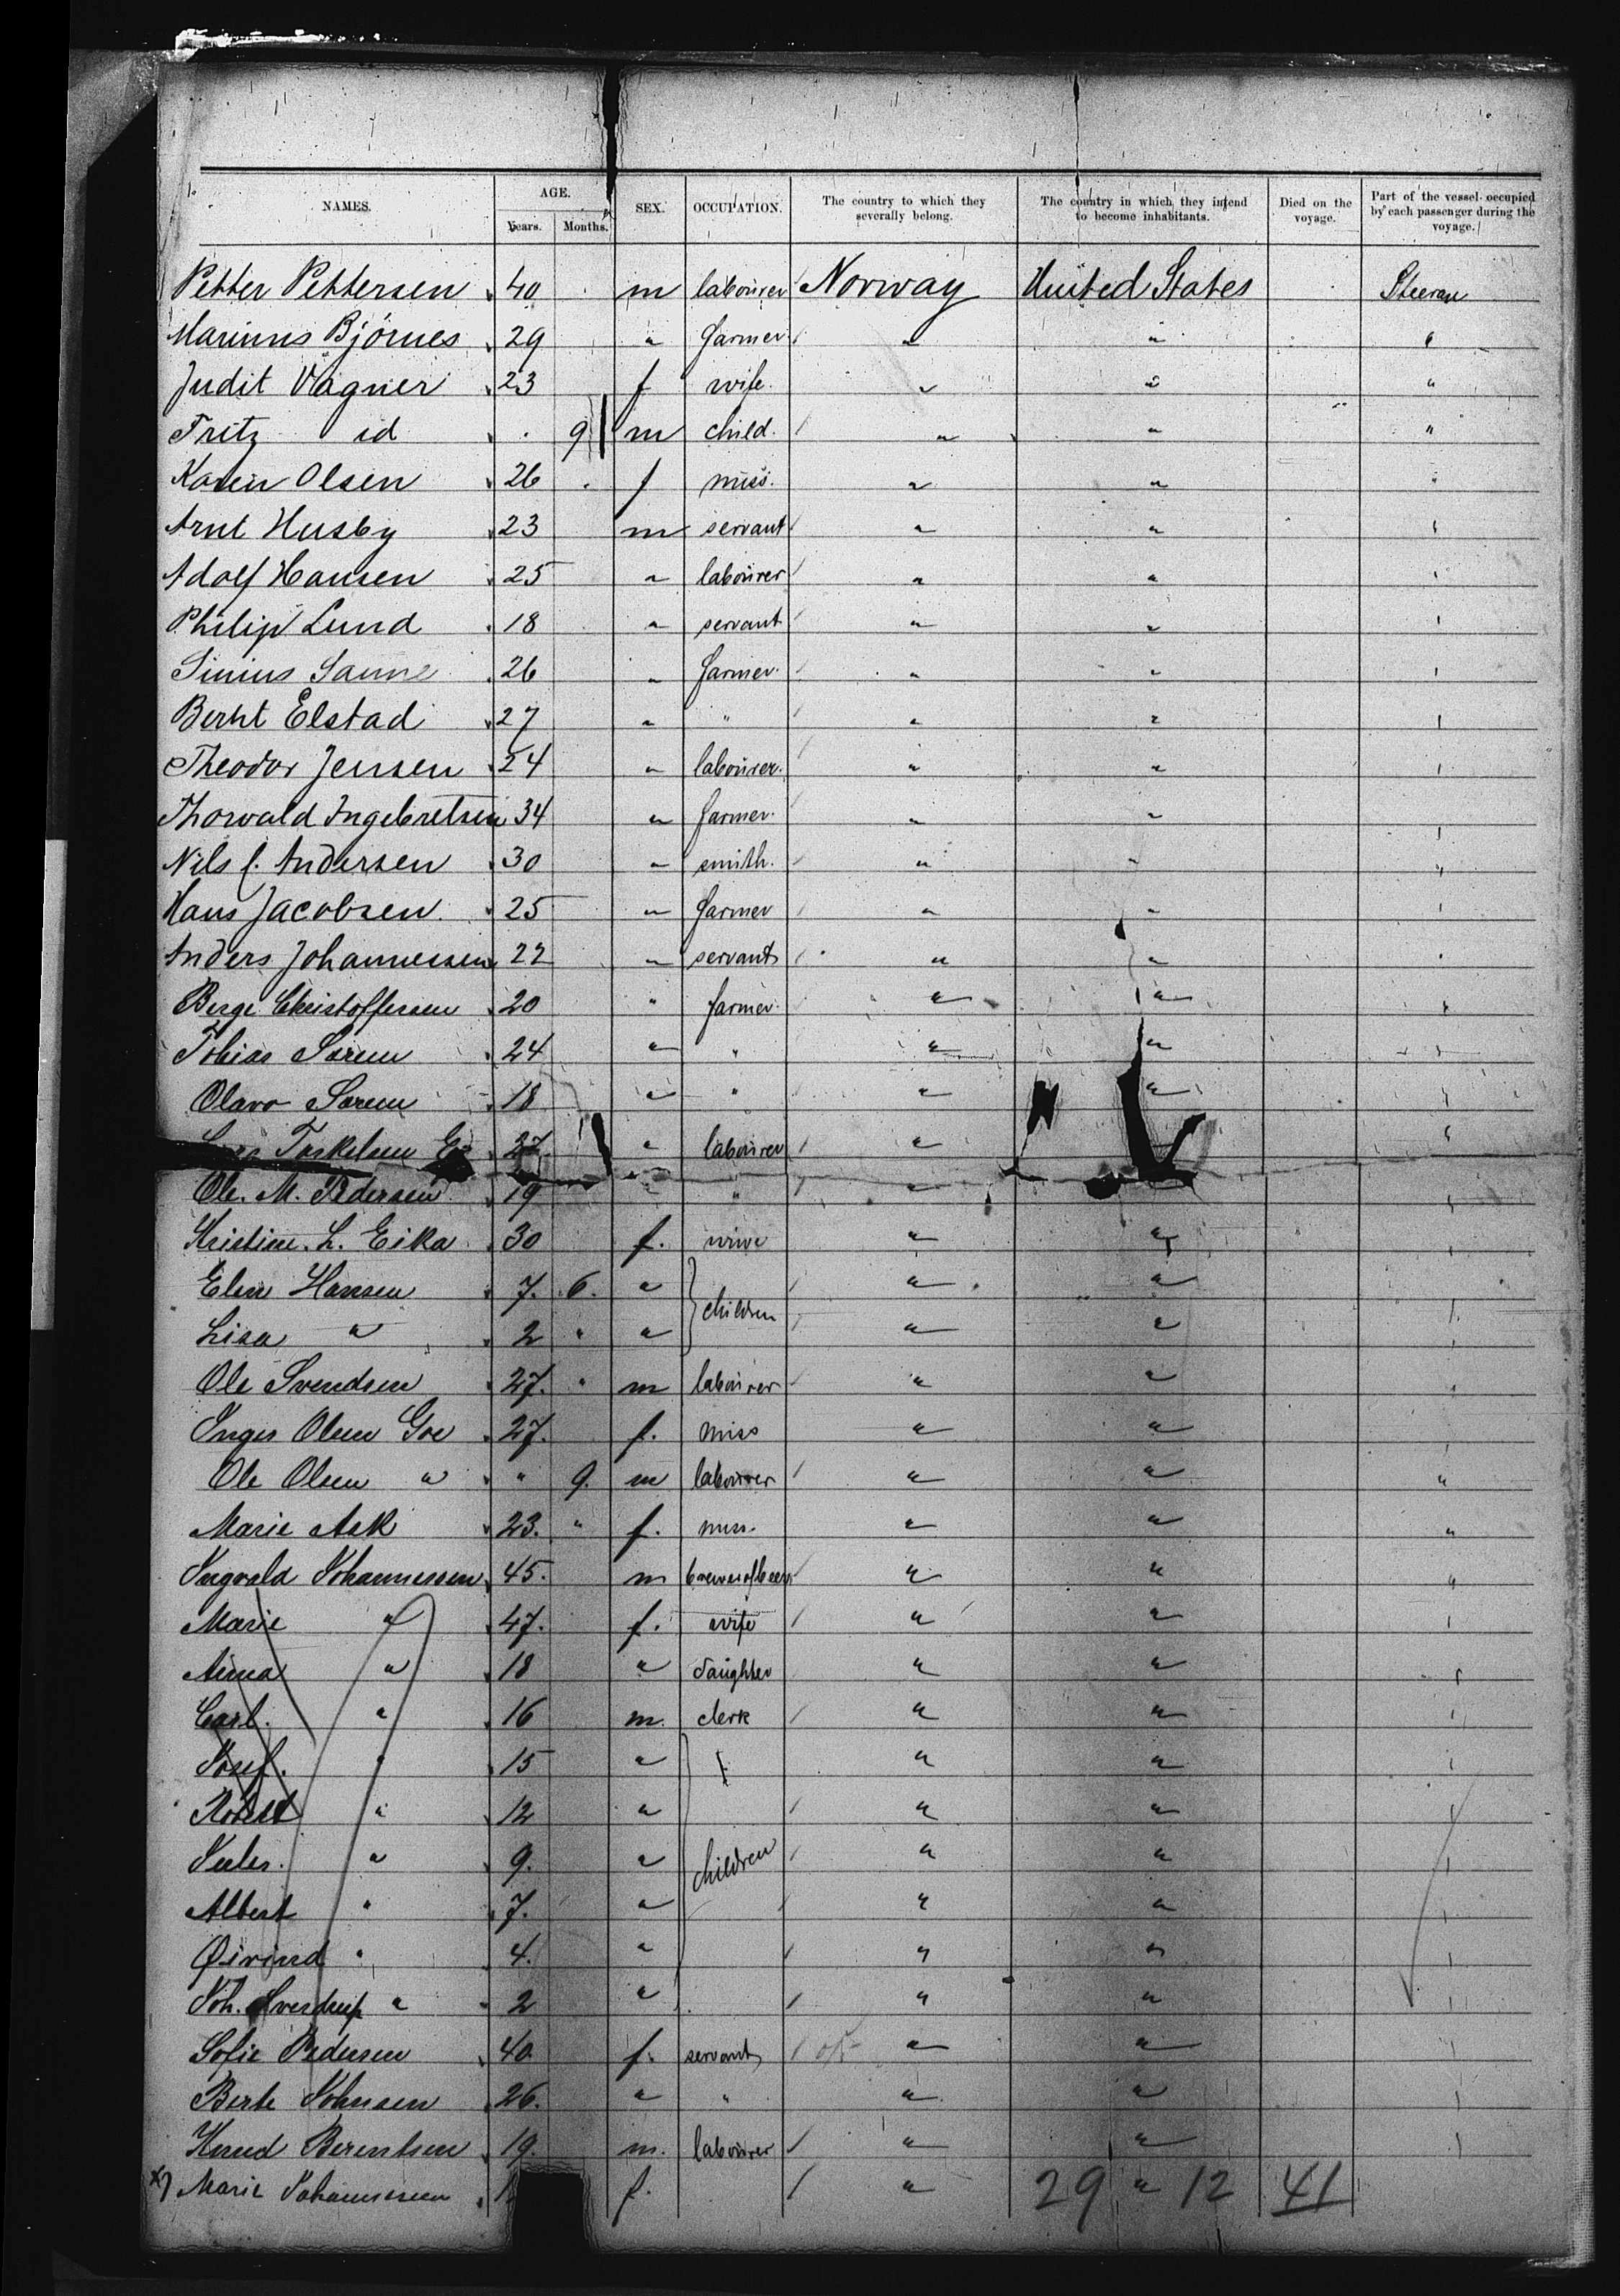 NAMES. AGE. Years. Months. SEX. OCCUPATION. The country to which they severally belong. The country in which they intend to become inhabitants. Died on the voyage. Part of the vessel occupied by each passenger during the voyage.
Petter Pettersen 40 m labourer Norway United States
Marinus Bjørnes 29 " farmer " " "
Judit Vagner 23 f wife. " " "
Fritz id 9 m child. " " "
Karen Olsen 26 f miss. " " "
Arnt Husby 23 m servant " " "
Adolf Hansen 25 " labourer " " "
Philip Lund 18 " servant " " "
Sanne 26 " farmer " " "
Bernt Elstad 27 " " " " "
Theodor Jensen 24 " labourer. " " "
Thorvald Ingebretsen 34 " farmer. " " "
Nils Andersen 30 " smith. " " "
Hans Jacobsen 25 " farmer " " "
Anders Johannessen 22 " servant " " "
Berge Christoffersen 20 " farmer " " "
Tobias Sørum 24 " " " " "
Olava Sørum 18 " " " " "
Torkelsen 27 " labourer " "
Ole. M. Pedersen 19 " " " " "
Kristine. L. Eika 30 f. " " "
Elen Hansen 7. 6. " children " " "
Lisa " 2 " " " " "
Ole Svendsen 27. " m labourer " " "
Inger Olsen Goe 27. f. miss " " "
Ole Olsen " " 9. m labourer " " "
Marie Ask 23. " f. miss. " " "
Ingvald Johannessen 45. m " " "
Marie " 47. f. wife " " "
Anna " 18 " daughter " " "
Carl. " 16 m. clerk " " "
Josef. " 15 " " " "
Robert " 12 " " " "
Jules. " 9. " children " " "
Albert " 7. " " " "
Øivind " 4. " " " "
Joh. Sverdrup " 2 " " " "
Sofie Pedersen 40. f. servant " " "
Berte Johnsen 26. " " " " "
Knud Berentsen 19. m. labourer " " "
x) Marie Johannessen f. " 29 " 12 41